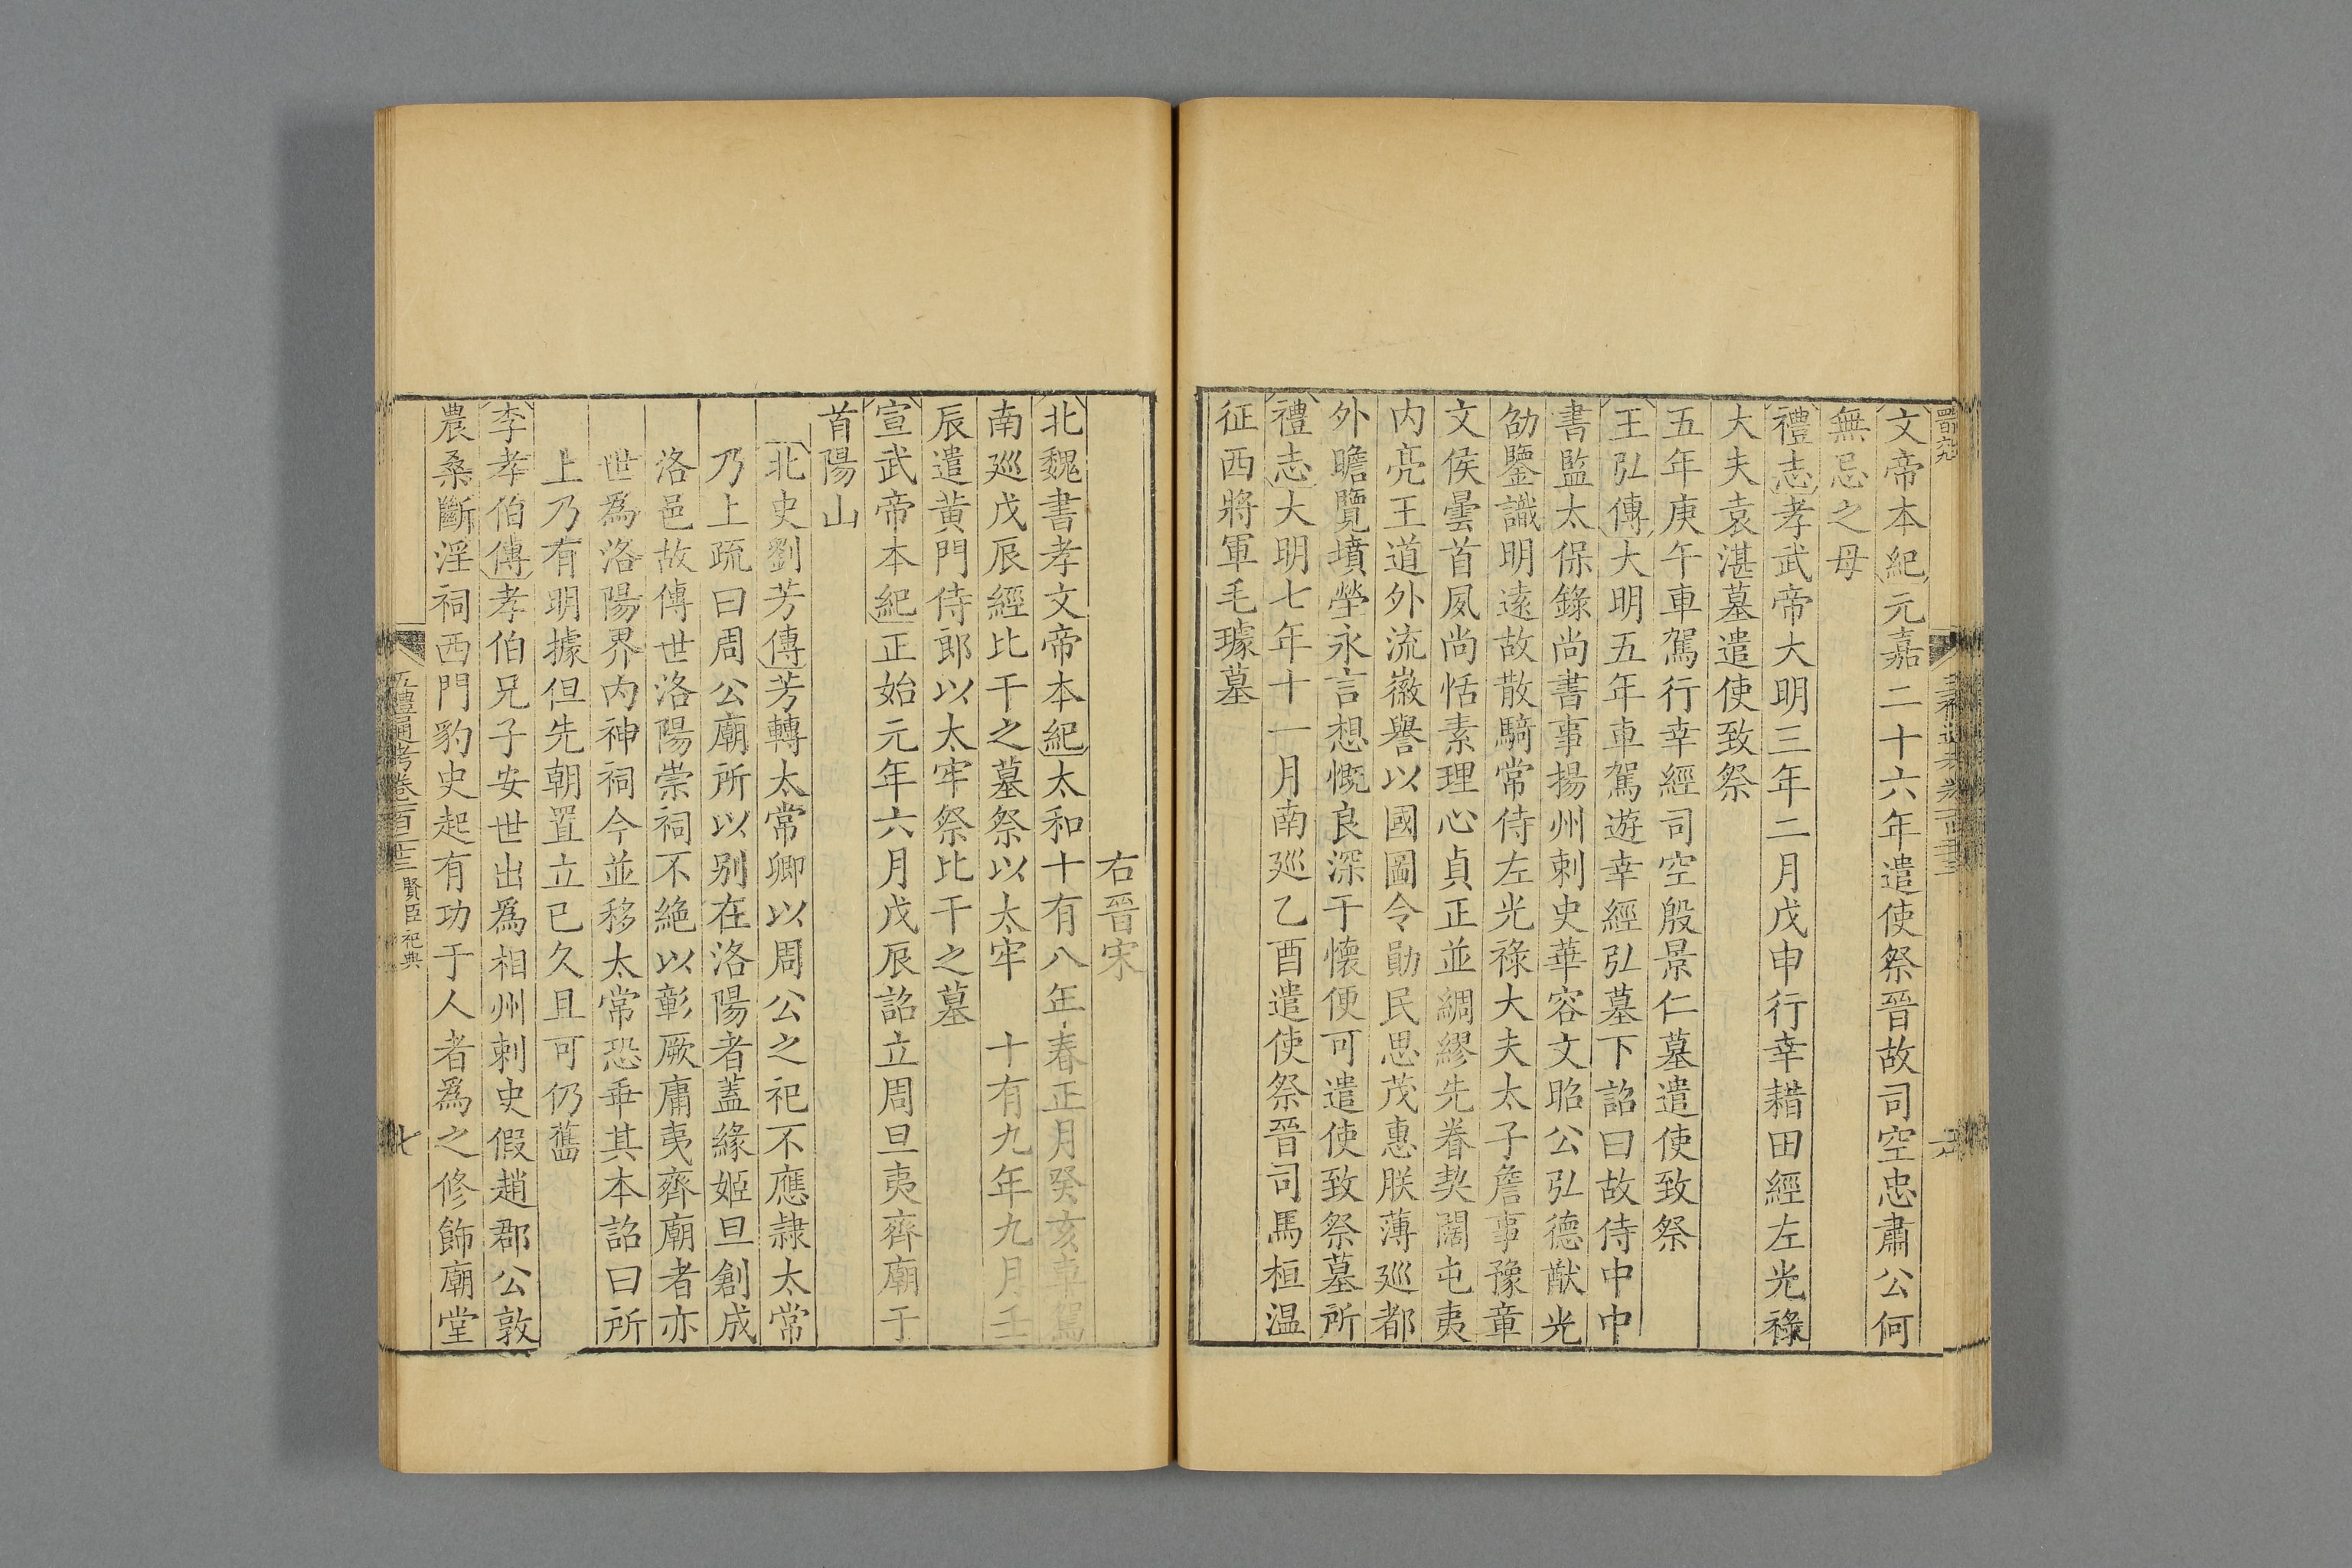 文帝本紀元嘉二十六年遣使祭晉故司空忠肅公何
無忌之母
禮志孝武帝大明三年二月戊申行幸耤田經左光祿
大夫袁湛墓遣使致祭
五年庚午車駕行幸經司空殷景仁墓遣使致祭
王弘傳大明五年車駕遊幸經弘墓下詔曰故侍中中
書監太保錄尚書事揚州刺史華容文昭公弘德猷光
劭鑒識明遠故散騎常侍左光祿大夫太子詹事豫章
文侯曇首夙尚恬素理心貞正並綢繆先眷契闊屯夷
内亮王道外流徽譽以國圖令勛民思茂惠朕薄巡都
外瞻覽墳塋永言想慨良深于懷便可遣使致祭墓所
禮志大明七年十一月南巡乙酉遣使祭晉司馬桓温
征西將軍毛璩墓
右晉宋
北魏書孝文帝本紀太和十有八年春正月癸亥車駕
南巡戊辰經比干之墓祭以太牢　十有九年九月壬
辰遣黄門侍郎以太牢祭比干之墓
宣武帝本紀正始元年六月戊辰詔立周旦夷齊廟于
首陽山
北史劉芳傳芳轉太常卿以周公之祀不應隷太常
乃上疏曰周公廟所以别在洛陽者蓋緣姬旦創成
洛邑故傳世洛陽崇祠不絶以彰厥庸夷齊廟者亦
世爲洛陽界内神祠今並移太常恐乖其本詔曰所
上乃有明據但先朝置立已久且可仍舊
李孝伯傳孝伯兄子安世出爲相州刺史假趙郡公敦
農桑斷淫祠西門豹史起有功于人者爲之修飾廟堂
五禮通考卷一百二十三　賢臣祀典　七